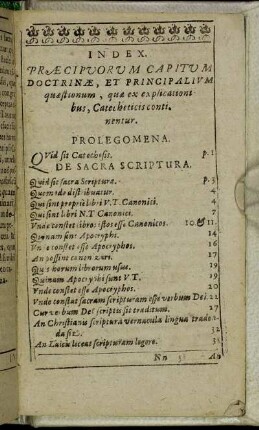 INDEX.
PRÆCIPVORVM CAPITVM
DOCTRINÆ, ET PRINCIPALIVM
quæstionum, quæ ex explicationi
bus, Catecheticis conti,
nentur.
PROLEGOMENA.
QVid sit Catechesis. p. 1.
DE SACRA SCRIPTURA.
Quid sit sacra Scriptura. p. 3
Quomodo distribuatur. 4
Qui sint proprii libri V.T. Canonici. 4
Qui sint libri N.T Canonici. 7
Vnde constet libros istos esse Canonicos. 10. & 11.
Quinam sint Apocryphi. 14
Vnde constet esse Apocryphos. 16
An possint canonizari. 17
Quis horum librorum usus. 19
Quinam Apocryphi sunt V T. 19
Vnde constet esse Apocryphos. 20
Vnde constat sacram scripturam esse verbum Dei. 22
Cur verbum Dei scriptis sit traditum. 27
An Christianis scriptura vernacula lingua traden-
da sit. 32
An Laicis liceat scripturam legere. 33
Nn An